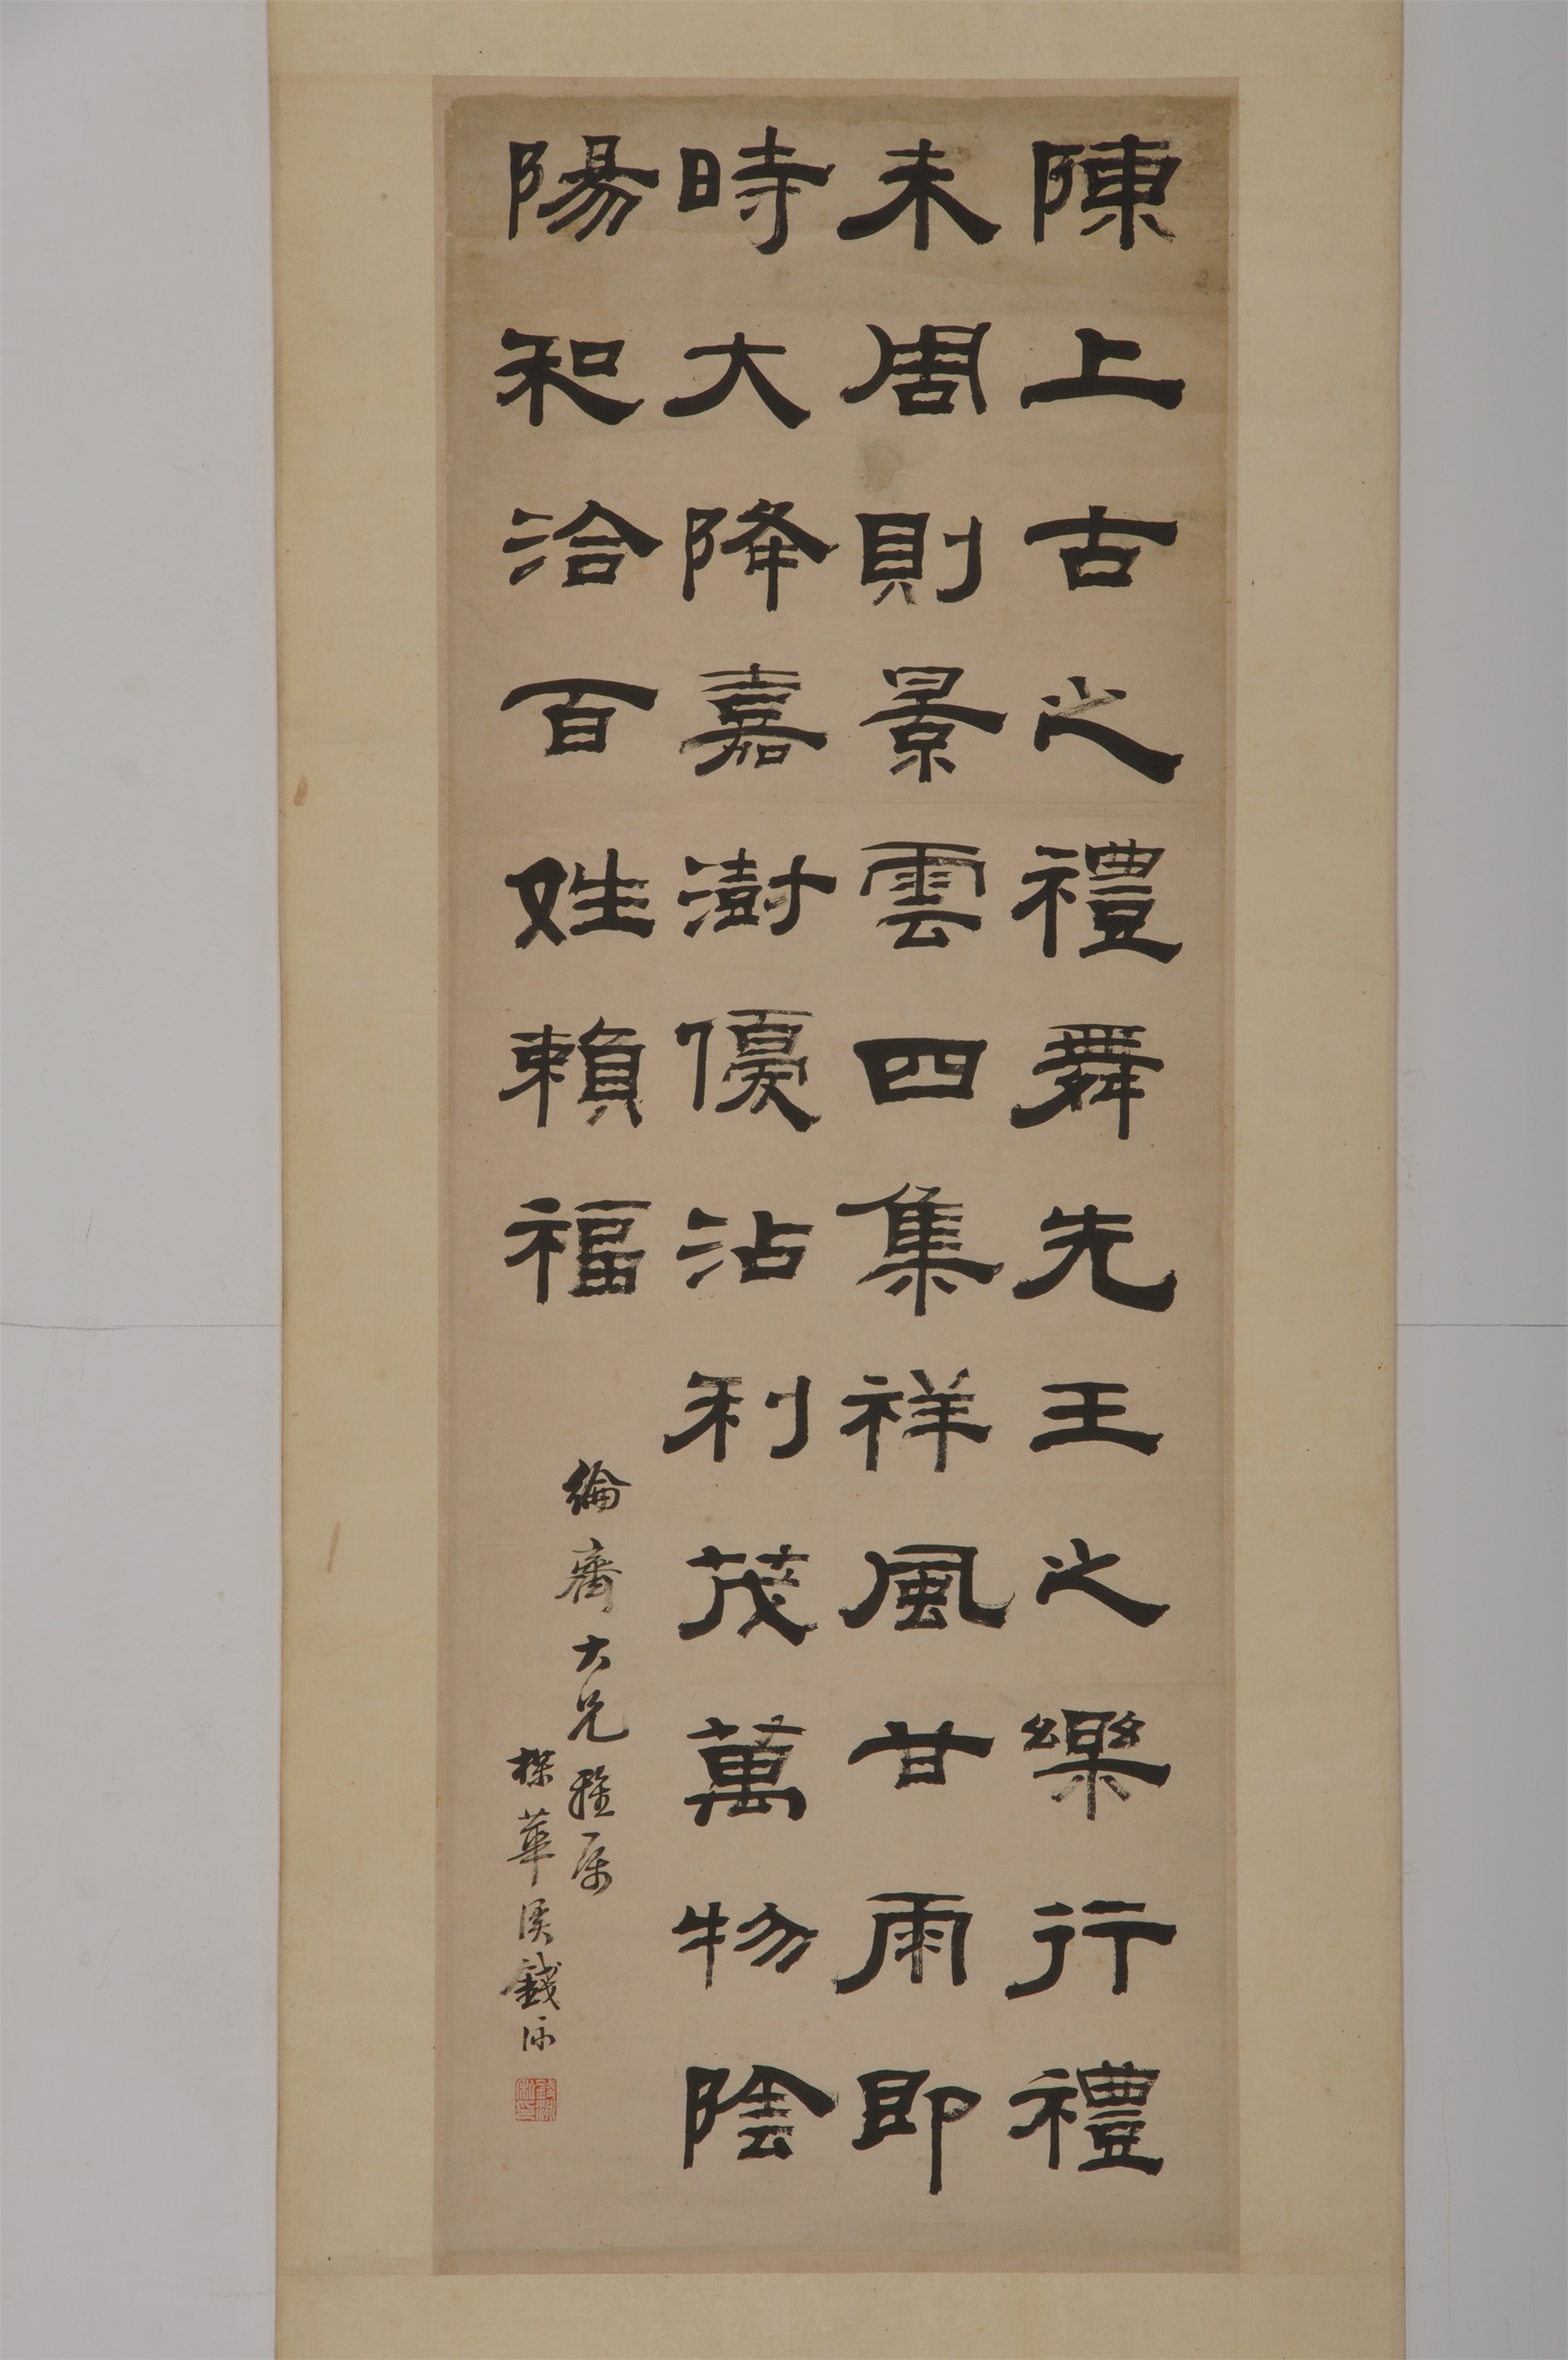 陳上古之禮舞先王之樂行禮
未周則景雲四集祥風廿雨即
時大降嘉澍優沾利茂萬物陰
陽和洽百姓賴福
綸齋大兄雅屬
楳華溪錢泳